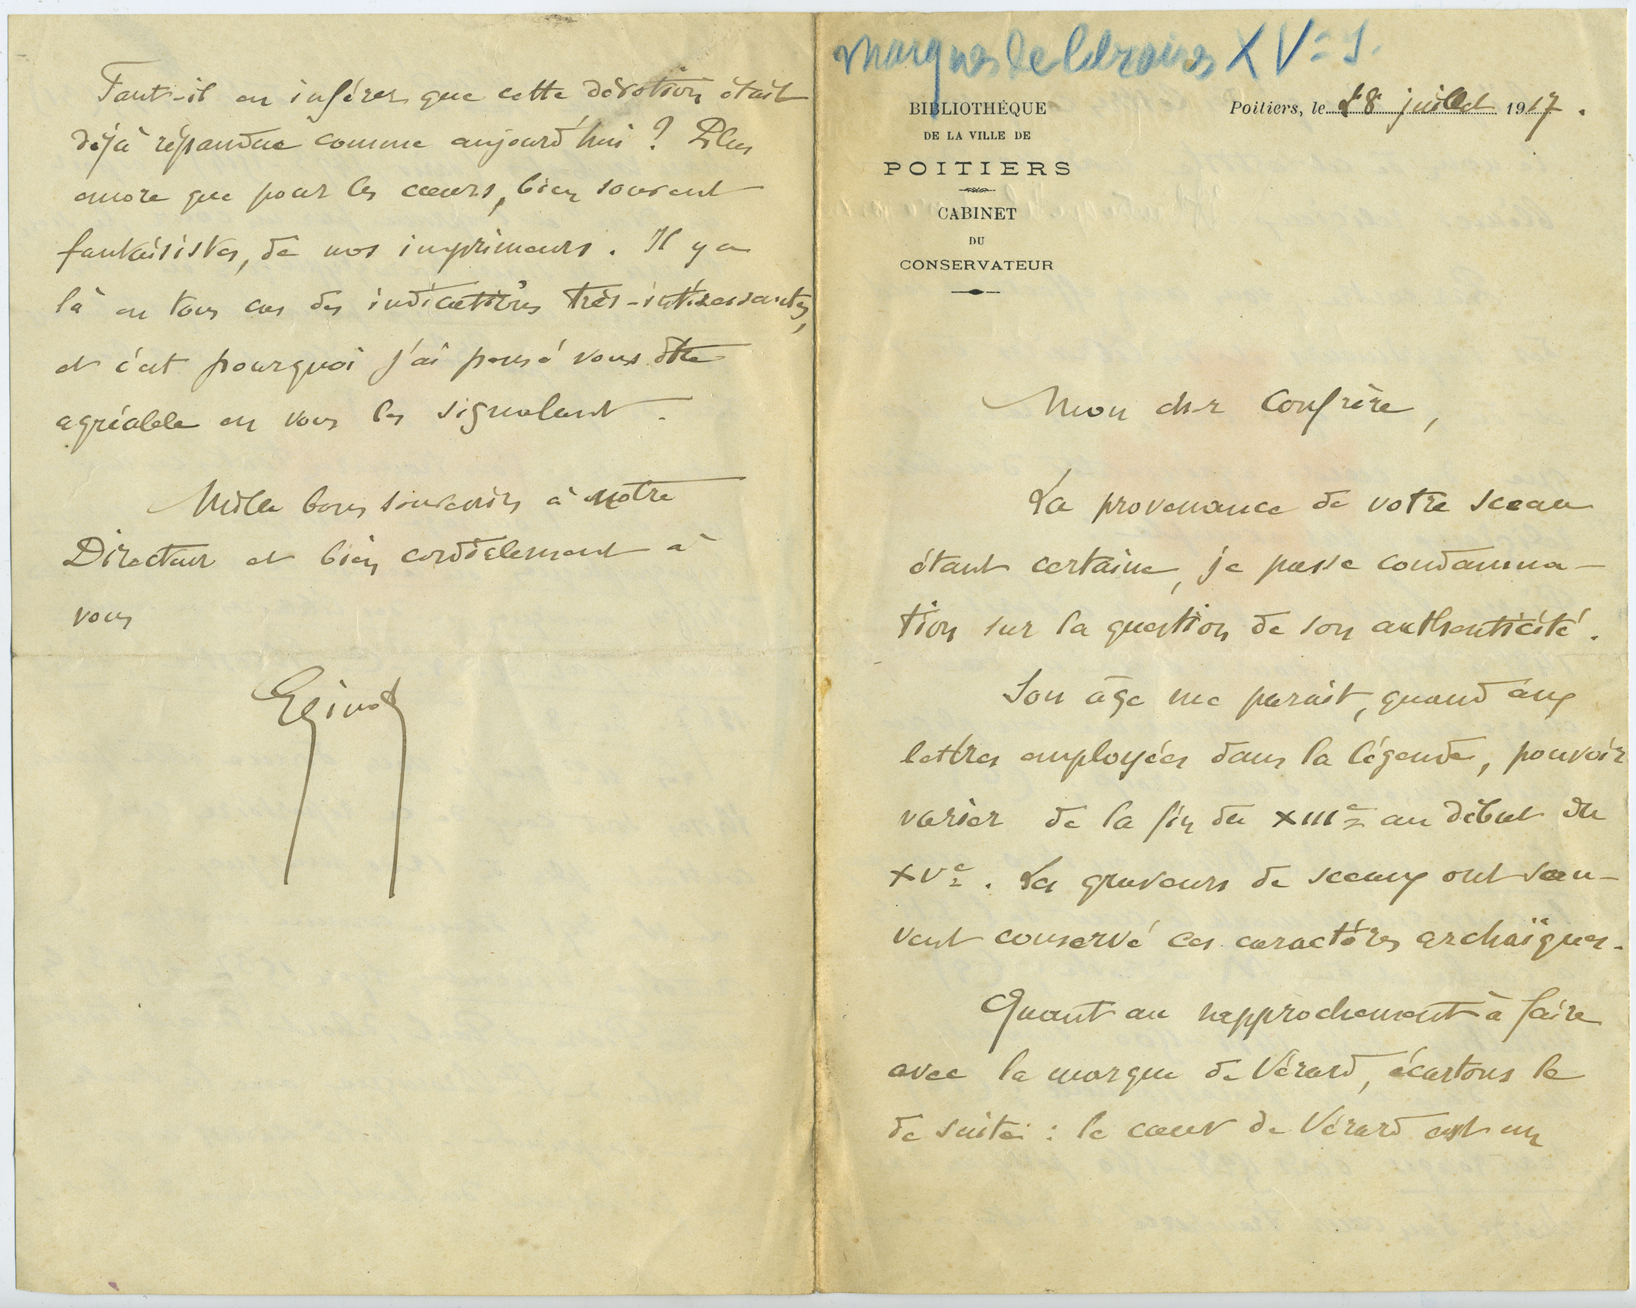 Marques de libraires XVe s.
BIBLIOTHÈQUE
DE LA VILLE DE
POITIERS
CABINET
DU
CONSERVATEUR
Poitiers, le 18 juillet 1917.
Mon cher Confrère,
La provenance de votre sceau
étant certaine, je passe condamna-
tion sur la question de son authenticité.
Son âge me paraît, quand aux
lettres employées dans la légende, pouvoir
varier de la fin du XIIIe au début du
XVe. Les graveurs de sceaux ont sou-
vent conservé ces caractères archaïques.
Quant au rapprochement à faire
avec la marque de Vérard, écartons le
de suite : le cœur de Vérard est un
Faut-il en inférer que cette dévotion était
déjà répandue comme aujourd'hui ? Plus
encore que pour les cœurs, bien souvent
fantaisistes, de nos imprimeurs. Il y a
là en tous cas des indications très-intéressantes,
et c'est pourquoi j'ai pensé vous être
agréable en vous les signalant.
Mille bons souvenirs à notre
Directeur et bien cordialement à
vous
Eginot